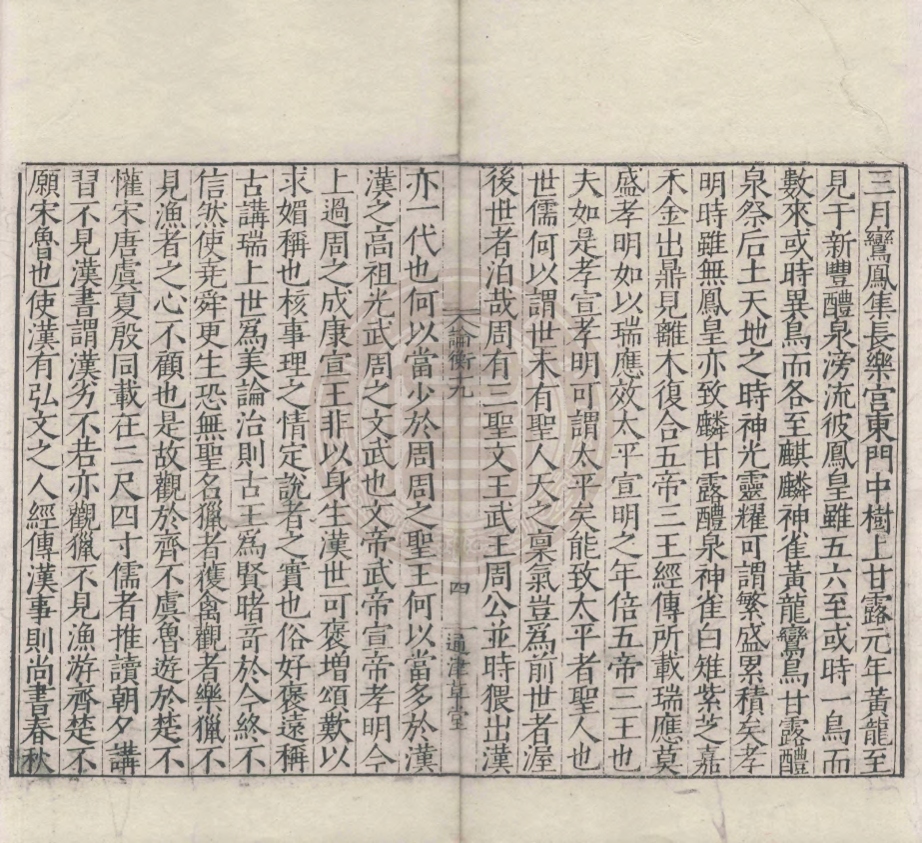 三月鸞鳳集長樂宮東門中樹上甘露元年黃龍至
見于新豐醴泉滂流彼鳳皇雖五六至或時一鳥而
數來或時異鳥而各至麒麟神雀黃龍鸞鳥甘露醴
泉祭后土天地之時神光靈耀可謂繁盛累積矣孝
明時雖無鳳皇亦致麟甘露醴泉神雀白雉紫芝嘉
禾金出鼎見離木復合五帝三王經傳所載瑞應莫
盛孝明如以瑞應效太平宣明之年倍五帝三王也
夫如是孝宣孝明可謂太平矣能致太平者聖人也
世儒何以謂世未有聖人天之稟氣豈爲前世者渥
後世者泊哉周有三聖文王武王周公並時猥出漢
論衡九
四
通津草堂
亦一代也何以當少於周周之聖王何以當多於漢
漢之高祖光武周之文武也文帝武帝宣帝孝明今
上過周之成康宣王非以身生漢世可褒增頌歎以
求媚稱也核事理之情定說者之實也俗好褒遠稱
古講瑞上世爲美論治則古王爲賢睹竒於今終不
信然使堯舜更生恐無聖名獵者獲禽觀者樂獵不
見漁者之心不顧也是故觀於齊不虞魯遊於楚不
懽宋唐虞夏殷同載在二尺四寸儒者推讀朝夕講
習不見漢書謂漢劣不若亦觀獵不見漁游齊楚不
願宋魯也使漢有弘文之人經傳漢事則尚書春秋